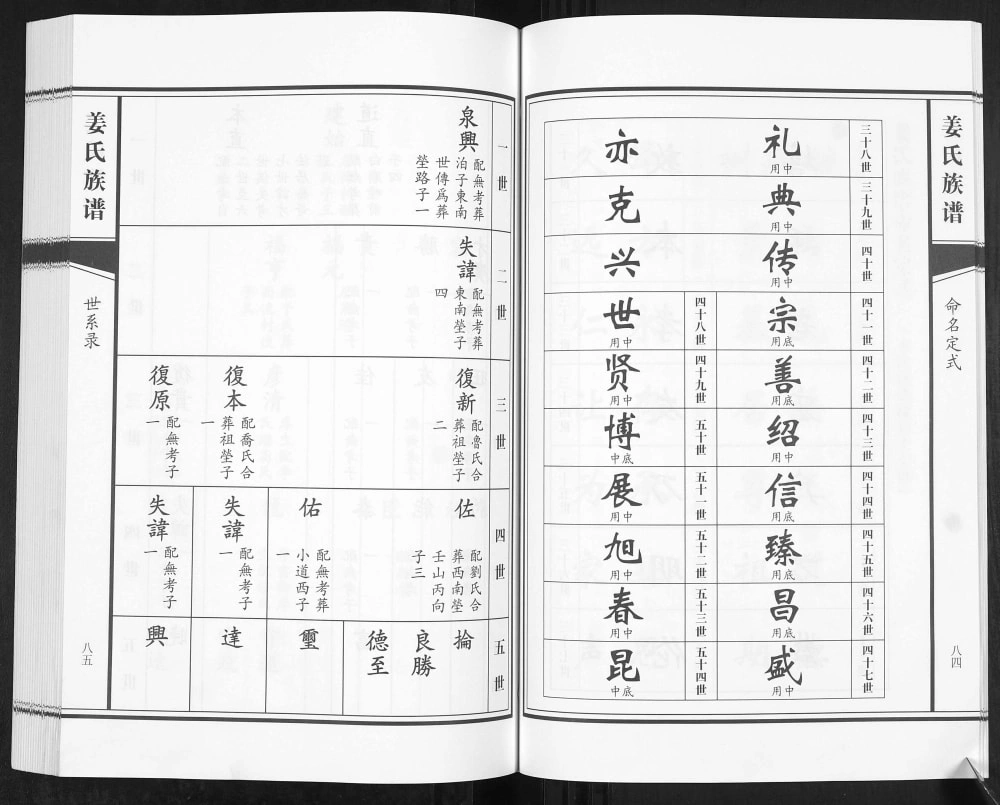 姜氏族谱
命名定式
八四
三十八世
礼
用中
亦
三十九世
典
用中
克
四十世
传
用中
兴
四十一世
宗
用底
四十八世
世
用中
四十二世
善
用底
四十九世
贤
用中
四十三世
绍
用中
五十世
博
中底
四十四世
信
用底
五十一世
展
用中
四十五世
臻
用底
五十二世
旭
用中
四十六世
昌
用底
五十三世
春
用中
四十七世
盛
用中
五十四世
昆
中底
一世
泉興
配無考葬
泊子東南
世傳爲葬
塋路子一
二世
失諱
配無考葬
東南塋子
四
三世
復新
配魯氏合
葬祖塋子
二
復本
配喬氏合
葬祖塋子
一
復原
配無考子
一
四世
佐
配劉氏合
葬西南塋
壬山丙向
子三
佑
配無考葬
小道西子
一
失諱
配無考子
一
失諱
配無考子
一
五世
掄
良勝
德至
璽
達
興
姜氏族谱
世系录
八五